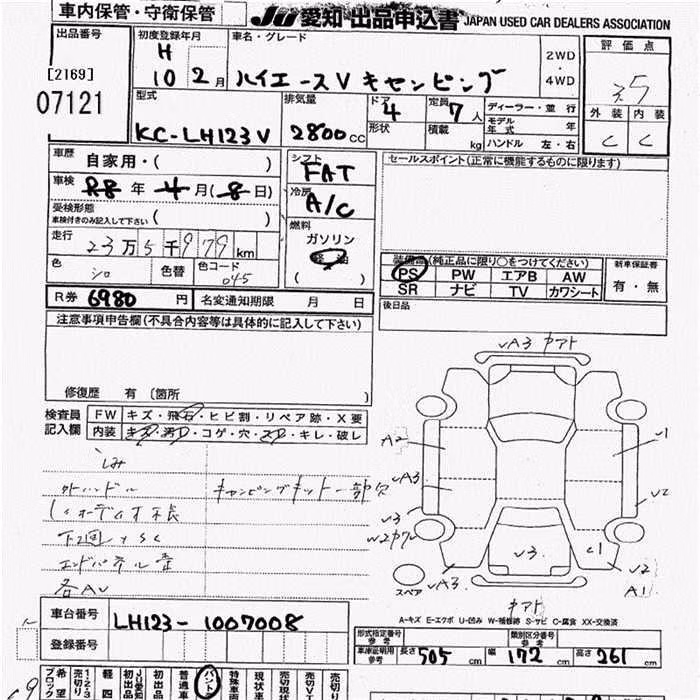 車内保管・守衛保管
JU 愛知 出品申込書 JAPAN USED CAR DEALERS ASSOCIATION
出品番号
[2169]
07121
初度登録年月
H
10 2月
車名・グレード
ハイエースV キャンピング
2WD
・
4WD
評価点
3.5
外装 内装
C C
型式
KC-LH123V
排気量
2800CC
ドア
4
形状
定員
7人
積載
kg
ディーラー・並行
モデル年式 年
ハンドル 左・右
車歴
自家用・( )
車検
R8年4月(8日)
受検形態
車検付きのみ記入して下さい ( )
走行
23万5千979km
色
シロ
色替
色コード
045
シフト
FAT
冷房
A/C
燃料
ガソリン
軽油
( )
セールスポイント(正常に機能するものに限ります)
装備品(純正品に限り○をつけてください)
PS PW エアB AW
SR ナビ TV カワシート
新車保証書
有・無
後日品
R券 6980円
名変通知期限 月 日
注意事項申告欄(不具合内容等は具体的に記入して下さい)
修復歴 有 〔箇所 〕
検査員記入欄
FW キズ・飛石・ヒビ割・リペア跡・X要
内装 キズ・汚レ・コゲ・穴・スレ・キレ・破レ
シミ
外ハンドル
キャンピングキット一部欠
エンドパネル
各AU
A3
A2
A3
U3
U1
U2
U3
C1
U2
A1
A3
スペア
A-キズ E-エクボ U-凹み W-補修跡 S-サビ C-腐食 XX-交換済
車台番号
LH123-1007008
登録番号
形式指定番号
参考
類別区分番号
参考
車庫証明用
参考
長さ 505cm 幅 172cm 高さ 261cm
希望ブロック
売切り
1・2・3
軽四
初出品
JU愛知
初出品
普通車
バント
特殊車両
現状車
売切現状